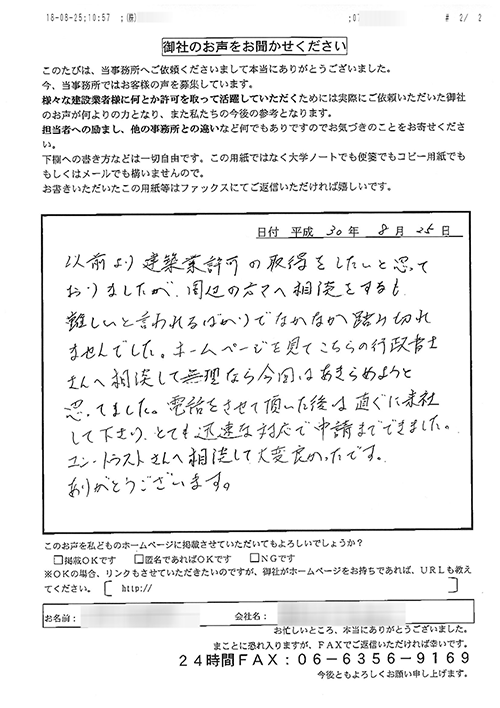 18-08-25;10:57 ;(有) ;07 # 2/ 2
御社のお声をお聞かせください
このたびは、当事務所へご依頼くださいまして本当にありがとうございました。
今、当事務所ではお客様の声を募集しています。
様々な建設業者様に何とか許可を取って活躍していただくためには実際にご依頼いただいた御社
のお声が何よりの力となり、また私たちの今後の参考となります。
担当者への励まし、他の事務所との違いなど何でもありですのでお気づきのことをお寄せくださ
い。
下欄への書き方などは一切自由です。この用紙ではなく大学ノートでも便箋でもコピー用紙でも
もしくはメールでも構いませんので。
お書きいただいたこの用紙等はファックスにてご返信いただければ嬉しいです。
日付 平成 30 年 8 月 25 日
以前より建築業許可の取得をしたいと思って
おりましたが、周辺の方々へ相談をするも
難しいと言われるばかりでなかなか踏み切れ
ませんでした。ホームページを見てこちらの行政書士
さんへ相談して無理なら今回はあきらめようと
思ってました。電話をさせて頂いた後は直ぐに来社
して下さり、とても迅速な対応で申請までできました。
ユン・トラストさんへ相談して大変良かったです。
ありがとうございます。
このお声を私どものホームページに掲載させていただいてもよろしいでしょうか?
□掲載OKです □匿名であればOKです □NGです
※OKの場合、リンクもさせていただきたいのですが、御社がホームページをお持ちであれば、URLも教え
てください。 [ http:// ]
お名前: 会社名:
お忙しいところ、本当にありがとうございました。
まことに恐れ入りますが、FAXでご返信いただければ幸いです。
24時間FAX:06-6356-9169
今後ともよろしくお願い申し上げます。